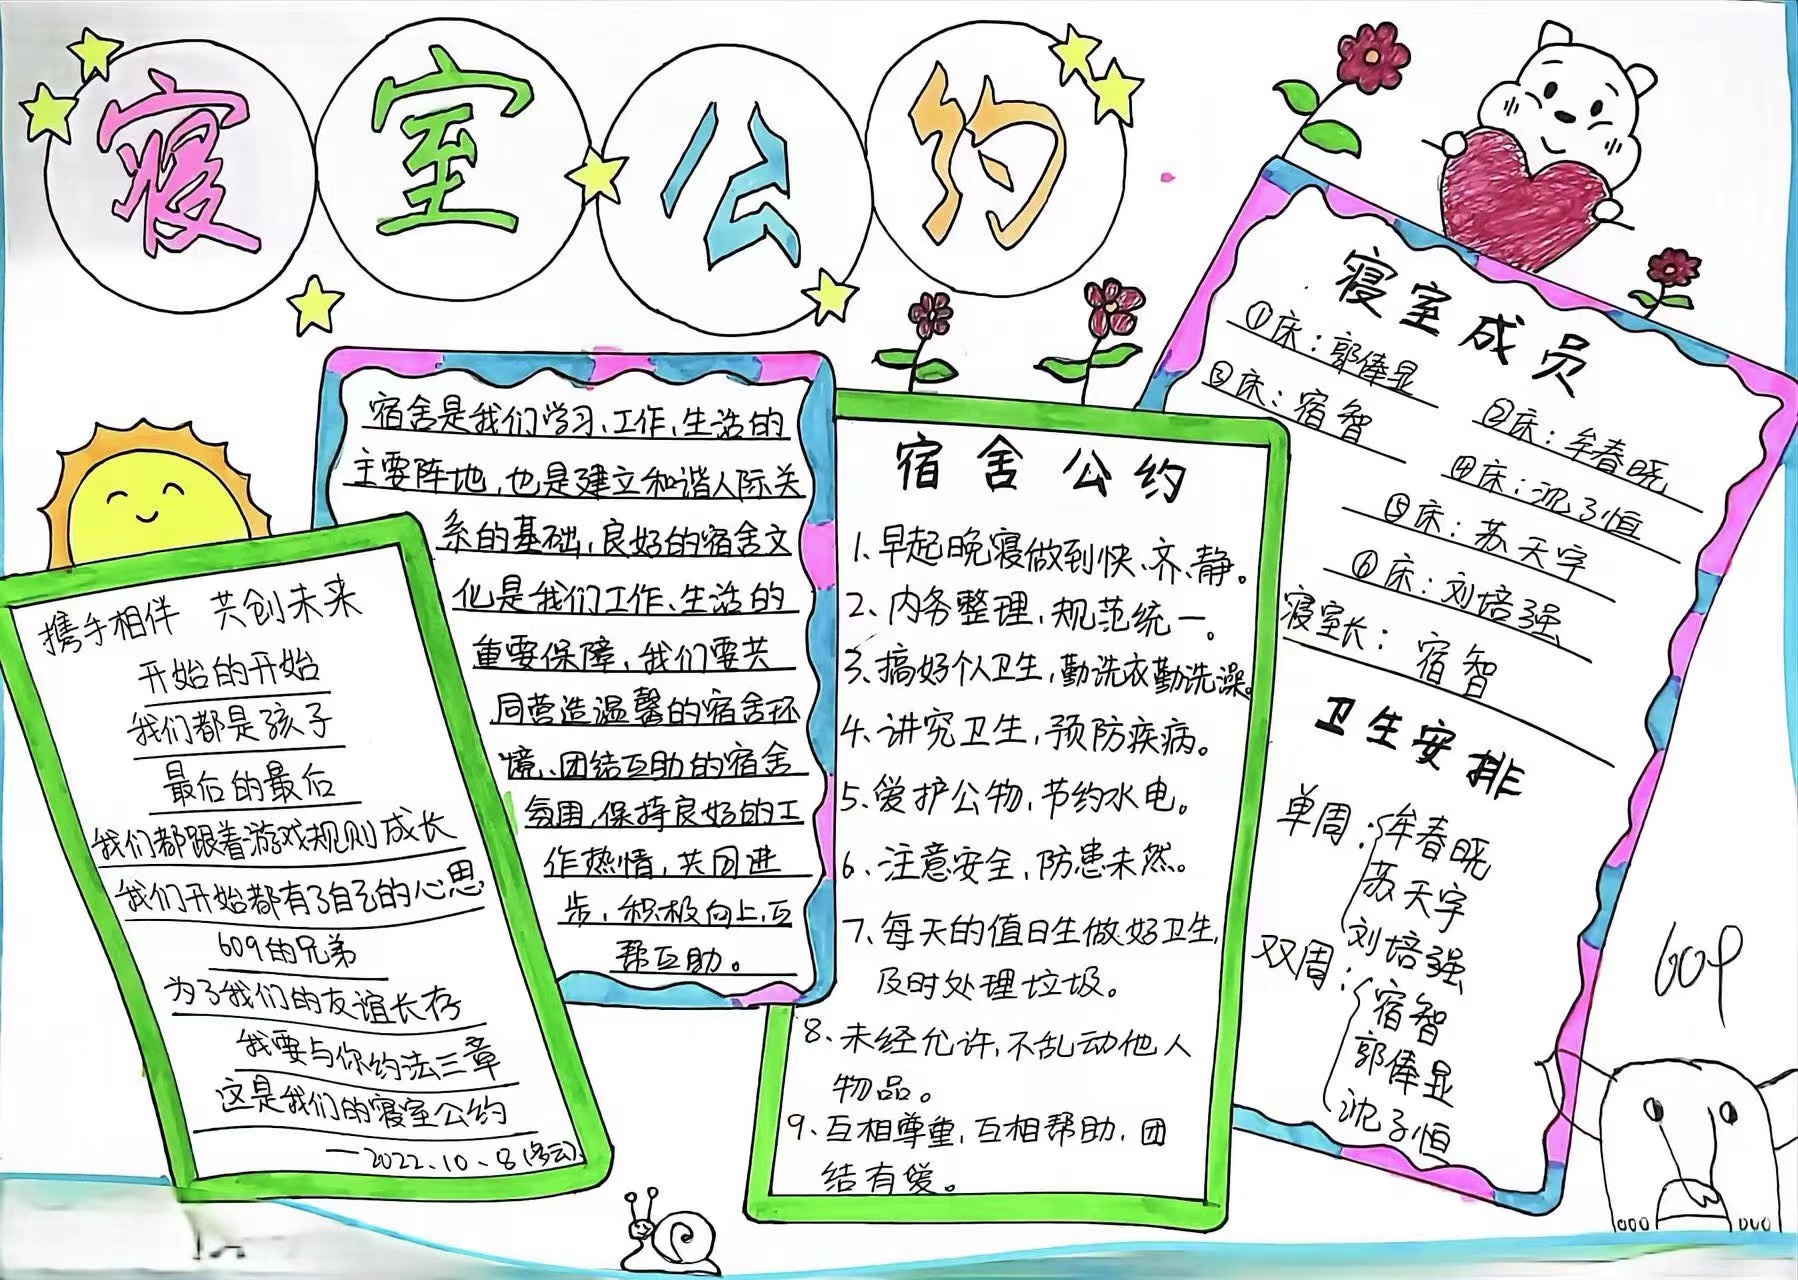 寝室公约
携手相伴 共创未来
开始的开始
我们都是孩子
最后的最后
我们都跟着游戏规则成长
我们开始都有了自己的心思
609的兄弟
为了我们的友谊长存
我要与你约法三章
这是我们的寝室公约
—2022.10.8(多云)
宿舍是我们学习、工作、生活的
主要阵地，也是建立和谐人际关
系的基础，良好的宿舍文
化是我们工作、生活的
重要保障，我们要共
同营造温馨的宿舍环
境、团结互助的宿舍
氛围，保持良好的工
作热情，共同进
步，积极向上，互
帮互助。
宿舍公约
1、早起晚寝做到快、齐、静。
2、内务整理，规范统一。
3、搞好个人卫生，勤洗衣勤洗澡。
4、讲究卫生，预防疾病。
5、爱护公物，节约水电。
6、注意安全，防患未然。
7、每天的值日生做好卫生，
及时处理垃圾。
8、未经允许，不乱动他人
物品。
9、互相尊重，互相帮助，团
结有爱。
寝室成员
①床：郭俸显
②床：牟春晓
③床：宿智
④床：沈子恒
⑤床：苏天宇
⑥床：刘培强
寝室长：宿智
卫生安排
单周：牟春晓
苏天宇
刘培强
双周：宿智
郭俸显
沈子恒
609